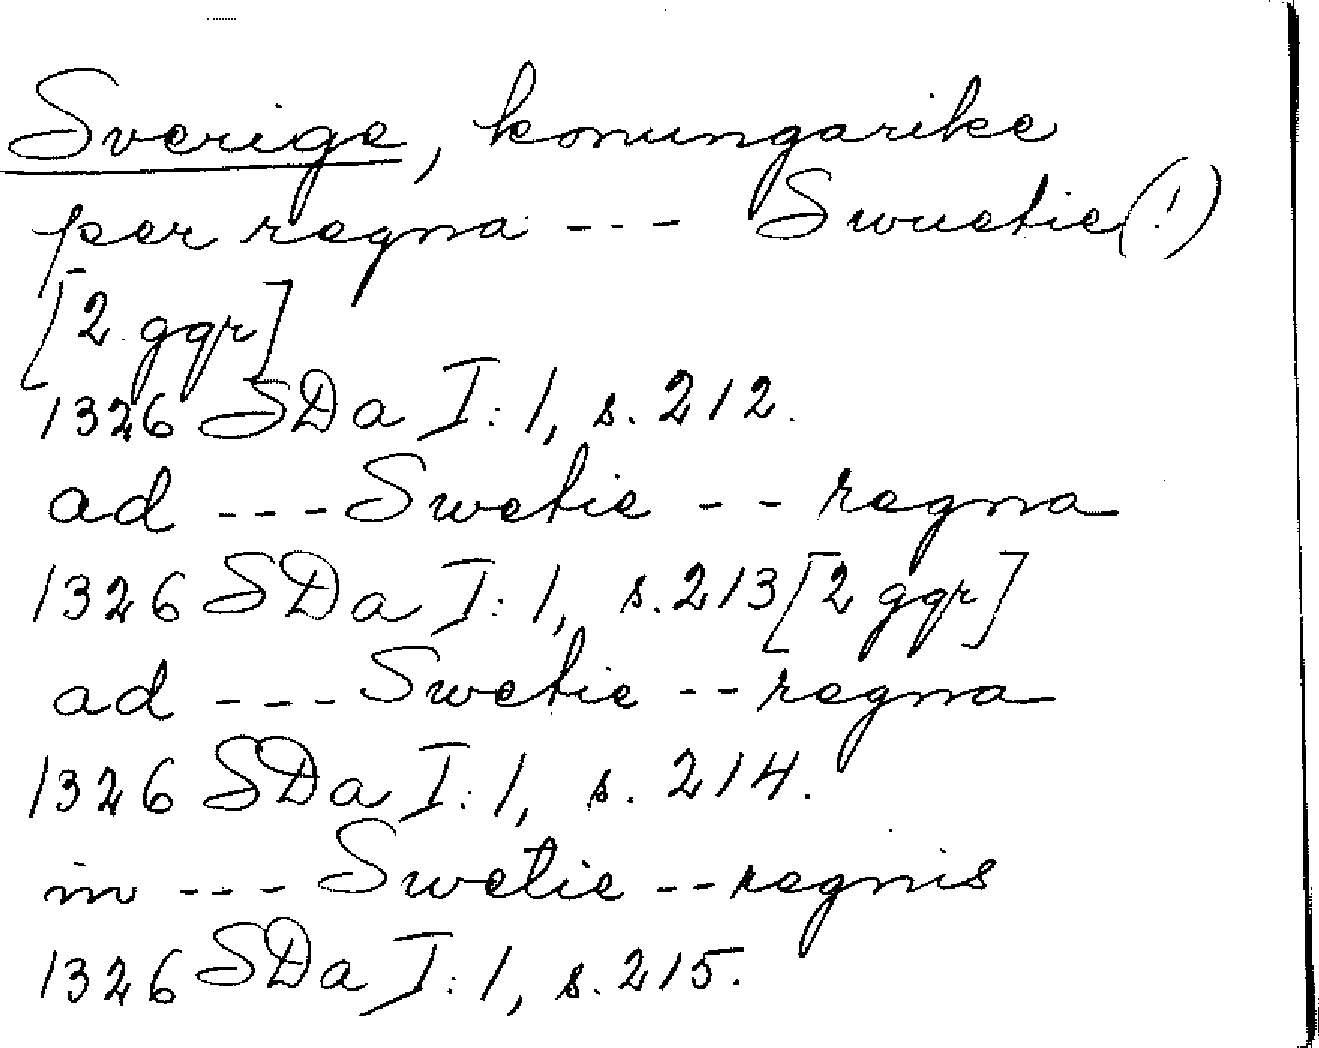 Sverige, konungarike
per regna --- Swuetie (!)
[2 ggr]
1326 SDa I:1, s. 212.
ad --- Swetie -- regna
1326 SDa I:1, s. 213 [2 ggr]
ad --- Swetie -- regna
1326 SDa I:1, s. 214.
in --- Swetie -- regnis
1326 SDa I:1, s. 215.